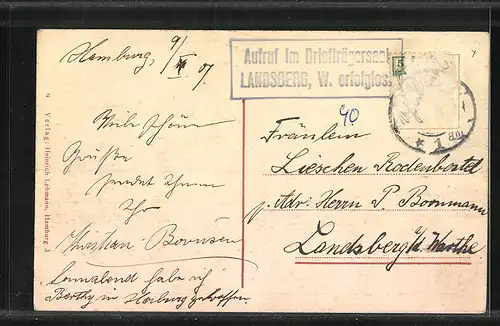 Hamburg, 9/V 07.
Aufruf im Briefträgersaal
LANDSBERG, W. erfolglos
5
40
* 1
Viele schöne
Grüße
sendet Ihnen
Ihr
Christian Boornsen
Sonnabend habe ich
Berthy in Harburg getroffen.
Fräulein
Lieschen Rodenbostel
p. Adr. Herrn P. Boornmann
Landsberg a/d Warthe
9 Verlag: Heinrich Lehmann, Hamburg 3